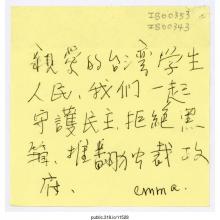 IB00353
IB00343
親愛的台灣学生
人民,我们一起
守護民主,拒絕黑
箱、推翻独裁政
府。
emma.
public.318.io/11539